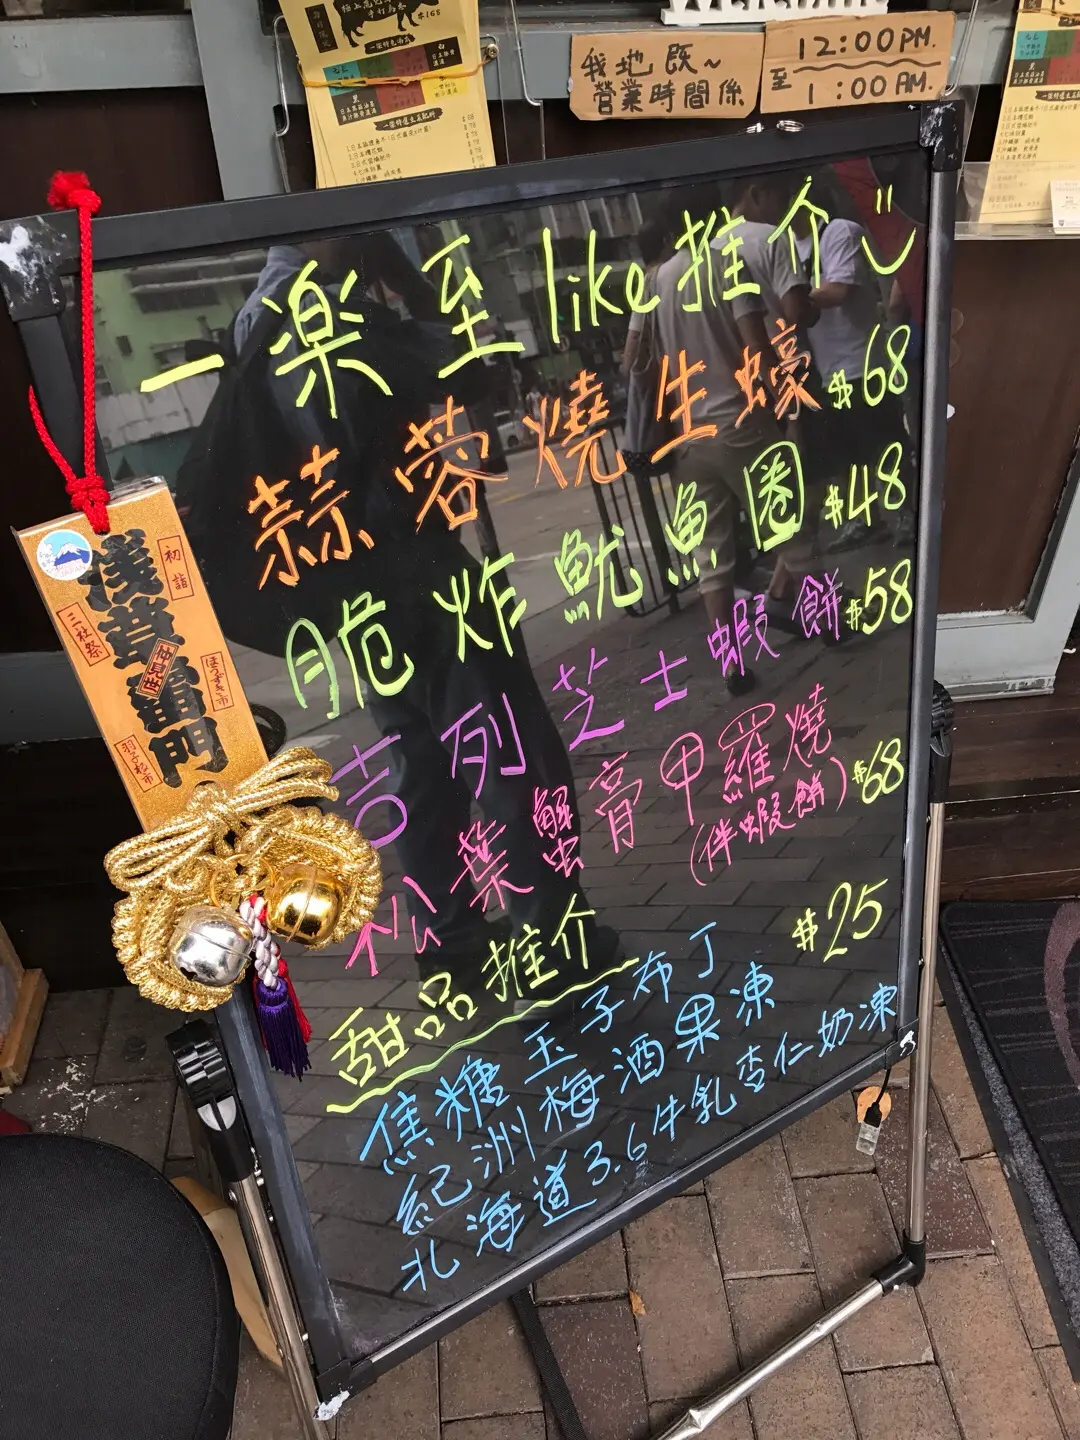 $165
我地既~
營業時間係
12:00PM.
至
1:00AM.
一楽至like推介
蒜蓉燒生蠔 $68
脆炸魷魚圈 $48
吉列芝士蝦餅 $58
松葉蟹膏甲羅燒 $68
(伴蝦餅)
甜品推介 $25
焦糖玉子布丁
紀洲梅酒果凍
北海道3.6牛乳杏仁奶凍
初詣
浅草雷門
三社祭
仲見世
ほうずき市
羽子板市